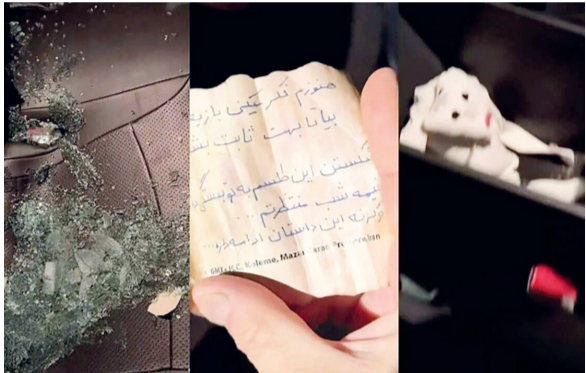 هنوزم فکر میکنی بازیه
بیا تا بهت ثابت بشه
شکستن این طلسم به تو بستگی
نیمه شب منتظرتم ...
وگرنه این داستان ادامه داره...
Kaleme, Mazandaran Province, Iran